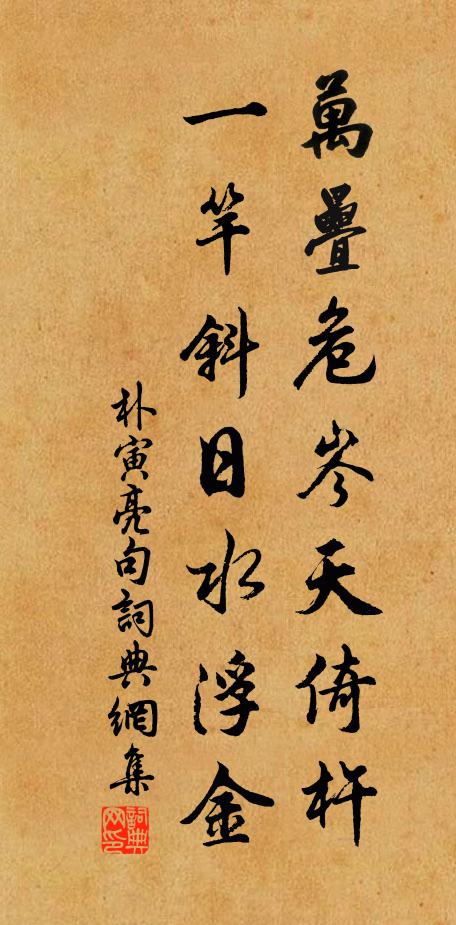 萬疊危岑天倚杵
一竿斜日水浮金
朴寅亮句詞典網集
詞典网印